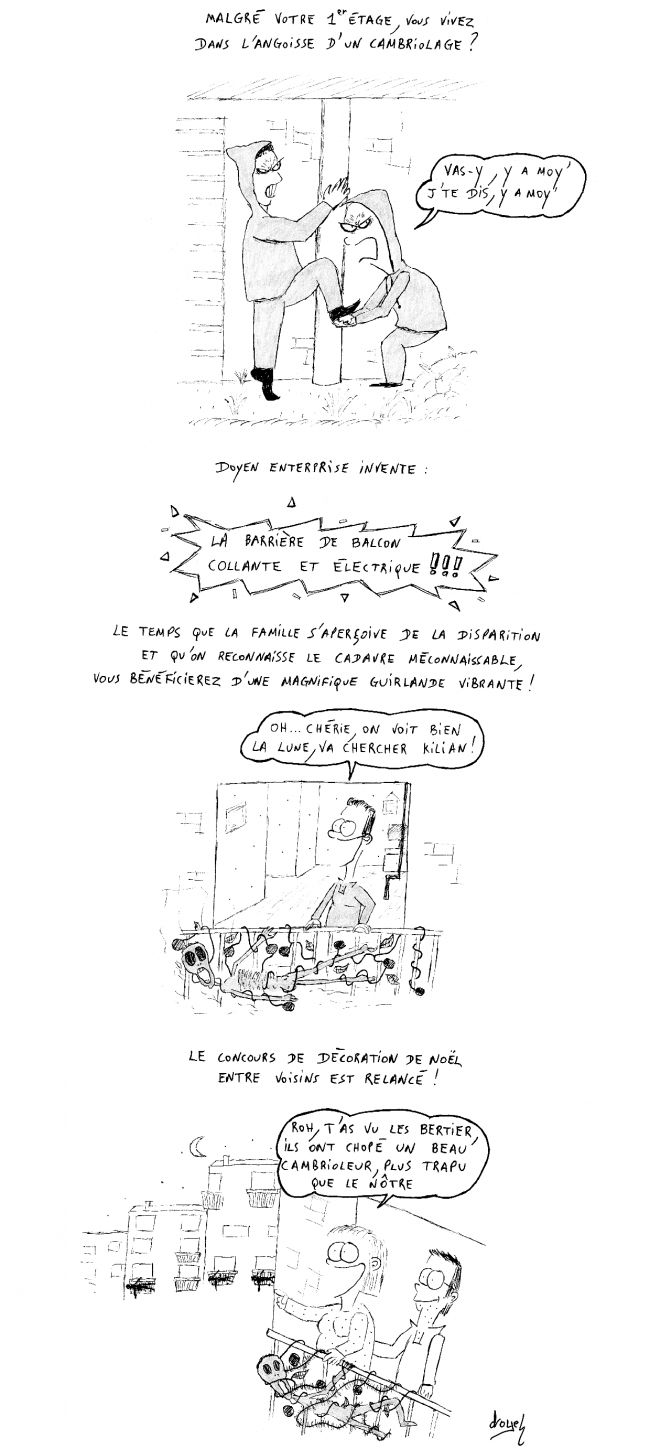 MALGRÉ VOTRE 1er ÉTAGE, VOUS VIVEZ
DANS L'ANGOISSE D'UN CAMBRIOLAGE ?
VAS-Y, Y A MOY'
J'TE DIS, Y A MOY'
DOYEN ENTERPRISE INVENTE :
LA BARRIÈRE DE BALCON
COLLANTE ET ÉLECTRIQUE !!!
LE TEMPS QUE LA FAMILLE S'APERÇOIVE DE LA DISPARITION
ET QU'ON RECONNAISSE LE CADAVRE MÉCONNAISSABLE,
VOUS BÉNÉFICIEREZ D'UNE MAGNIFIQUE GUIRLANDE VIBRANTE !
OH... CHÉRIE, ON VOIT BIEN
LA LUNE, VA CHERCHER KILIAN !
LE CONCOURS DE DÉCORATION DE NOËL
ENTRE VOISINS EST RELANCÉ !
ROH, T'AS VU LES BERTIER,
ILS ONT CHOPÉ UN BEAU
CAMBRIOLEUR, PLUS TRAPU
QUE LE NÔTRE